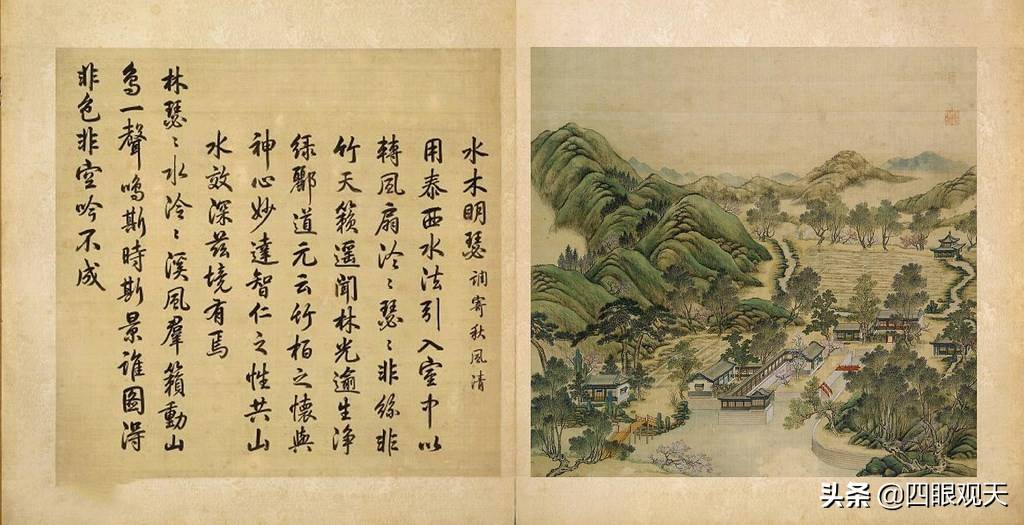 水木明瑟 调寄秋風清
用泰西水法引入室中以
轉風扇泠〻瑟〻非絲非
竹天籟遥聞林光逾生净
緑酈道元云竹柏之懷與
神心妙達智仁之性共山
水效深兹境有焉
林瑟〻水泠〻溪風羣籟動山
鳥一聲鳴斯時斯景誰圖得
非色非空吟不成
头条 @四眼观天